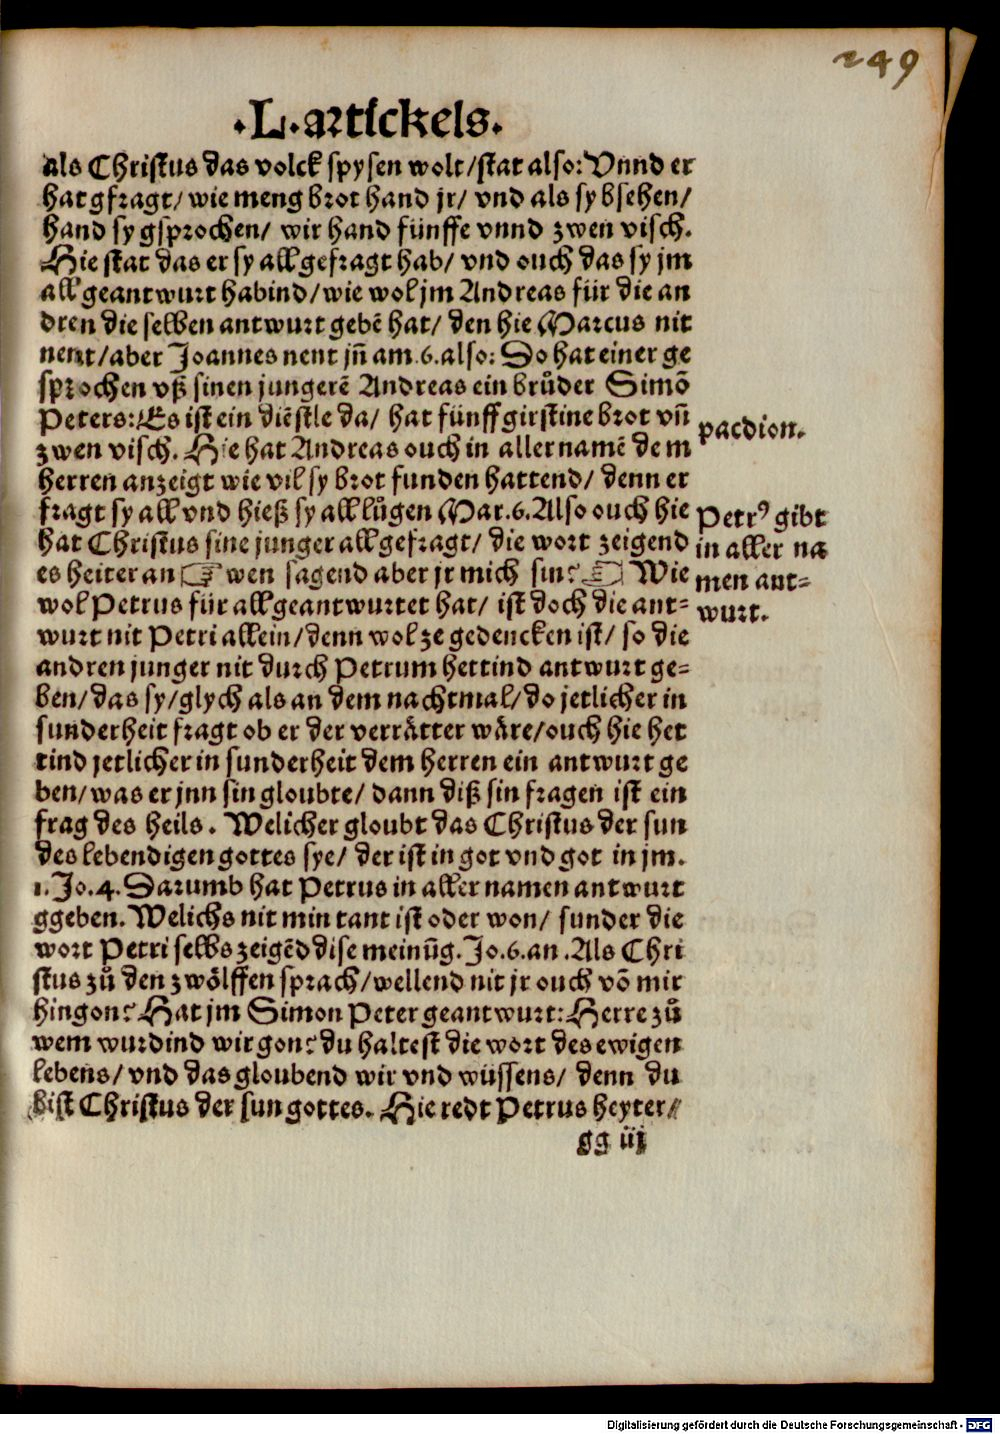 249
.L. artickels.
als Christus das volck spysen wolt/stat also: Vnnd er
hat gfragt/ wie meng brot hand jr/ vnd als sy bsehen/
hand sy gsprochen/ wir hand fünffe vnnd zwen visch.
Hie stat das er sy all gefragt hab/ vnd ouch das sy jm
all geantwurt habind/wie wol jm Andreas für die an
dren die selben antwurt gebē hat/ den hie Marcus nit
nent/aber Joannes nent jn̄ am.6.also: So hat einer ge
sprochen vß sinen jungerē Andreas ein brůder Simō
Peters: Es ist ein diēstle da/ hat fünff girstine brot vn̄
zwen visch. Hie hat Andreas ouch in aller namē dem
herren anzeigt wie vil sy brot funden hattend/ denn er
fragt sy all vnd hieß sy all lůgen Mar.6. Also ouch hie
hat Christus sine junger all gefragt/ die wort zeigend
es heiter an ☞ wen sagend aber jr mich sin? ☜ Wie
wol Petrus für all geantwurtet hat/ ist doch die ant-
wurt nit Petri allein/denn wol ze gedencken ist/ so die
andren junger nit durch Petrum hettind antwurt ge-
ben/das sy/glych als an dem nachtmal/do jetlicher in
sunderheit fragt ob er der verråtter wåre/ouch hie het
tind jetlicher in sunderheit dem herren ein antwurt ge
ben/was er jnn sin gloubte/ dann diß sin fragen ist ein
frag des heils. Welicher gloubt das Christus der sun
des lebendigen gottes sye/ der ist in got vnd got in jm.
1. Jo.4. Darumb hat Petrus in aller namen antwurt
ggeben. Welichs nit min tant ist oder won/ sunder die
wort Petri selbs zeigēd dise meinūg. Jo.6.an. Als Chri
stus zů den zwölffen sprach/wellend nit jr ouch vō mir
hingon? Hat jm Simon Peter geantwurt: Herre zů
wem wurdind wir gon? du haltest die wort des ewigen
lebens/ vnd das gloubend wir vnd wüssens/ denn du
bist Christus der sun gottes. Hie redt Petrus heyter/
gg iij
paedion.
Petr⁹ gibt
in aller na
men ant-
wurt.
Digitalisierung gefördert durch die Deutsche Forschungsgemeinschaft - DFG